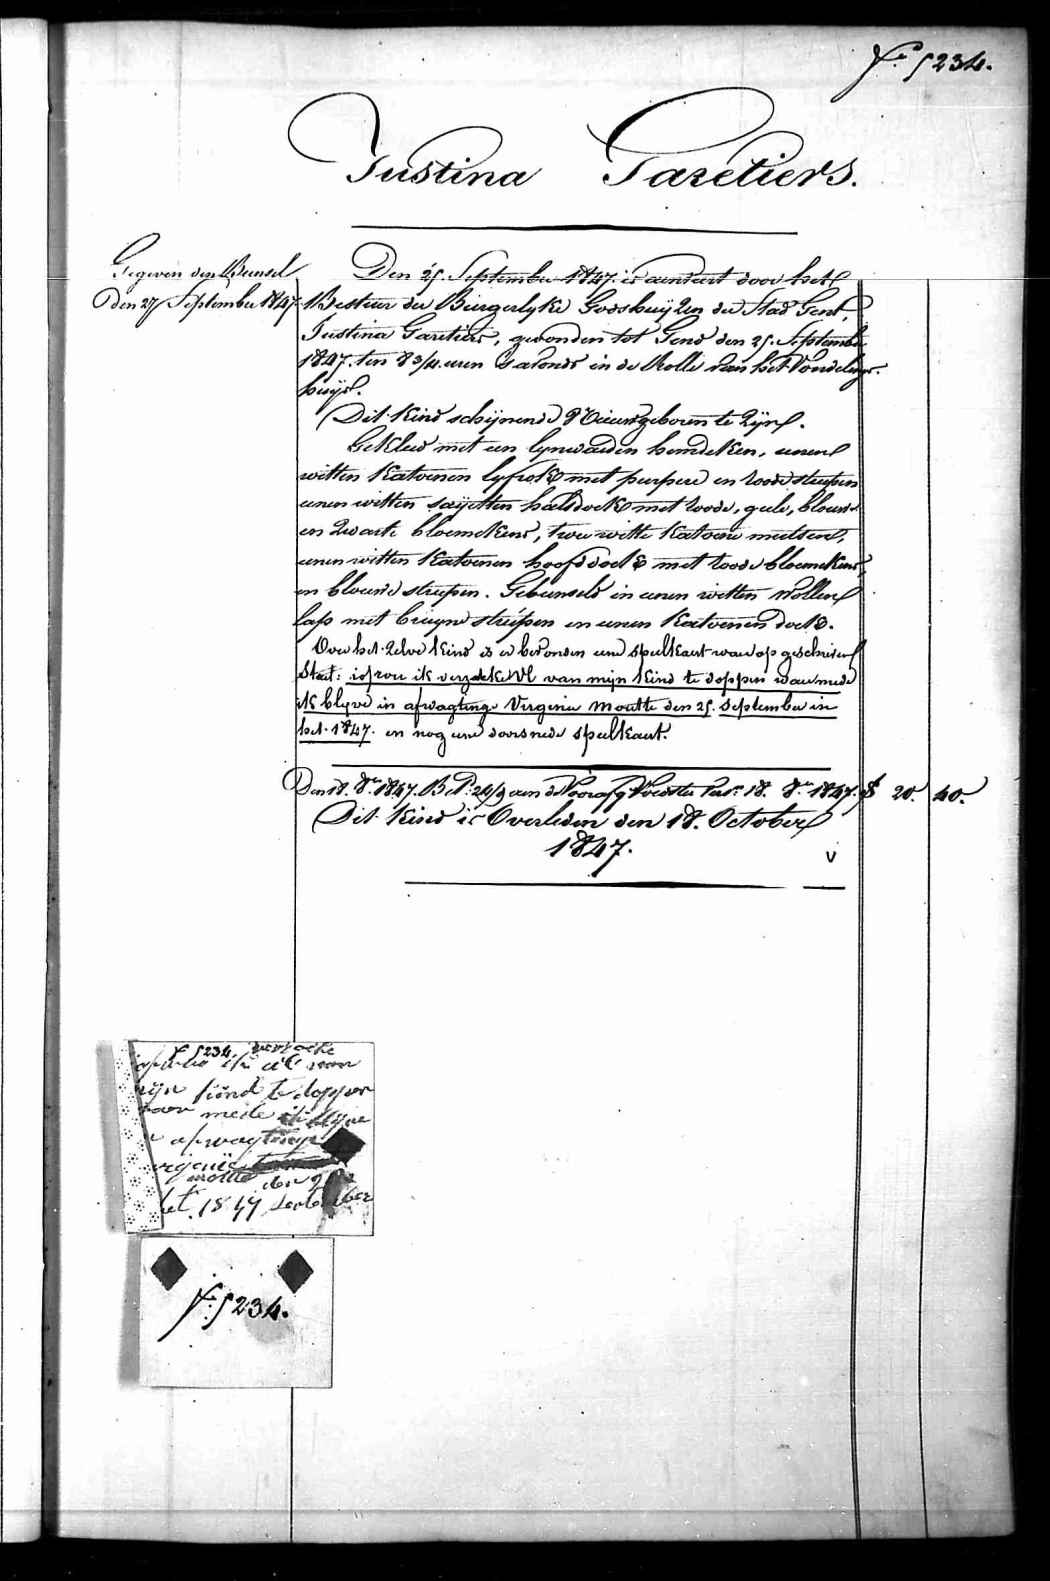 F.° 5234.
Justina Garetiers.
Gegeven den Bunsel
den 27 September 1847.
Den 25. September 1847. is aenveert door het
Bestier der Burgerlyke Godshuyzen der Stad Gent,
Justina Garetiers, gevonden tot Gend den 25. September
1847. ten 8 3/4 uren S'avonds in de Rolle van het Vondelings-
huys.
Dit kind schynende Nieuwgeboren te zyn.
Gekleed met een lynwaeden hemdeken, eenen
witten katoenen lyfrok met purpere en roode streepen
eenen witten sayetten halsdoek met roode, geele, blauwe
en zwarte bloemekens, twee witte katoene mutsen,
eenen witten katoenen hoofddoek met roode bloemekens,
en blauwe streepen. Gebunseld in eenen witten wollen
lap met bruyne streépen en eenen katoenen doek.
Over het zelve kind is er bevonden eene speelkaert waer op geschreven
Staet: isfrou ik verzoeke Ul van mijn kind te doppen waermede
ik blyve in afwagtinge Virginie Moutte den 25. September in
het 1847. en nog eene doorsnede speelkaert.
Den 18. 8.er 1847. Bet. 24/9 aen de Voorafg. Voedster Vac.n 18. 8.er 1847. $ 20. 40.
Dit kind is Overleden den 18. October
1847.
v
F 5234. verzoeke
ik ul van
mijn kind te doppen
waer mede ik blyve
in afwagtinge
virgenie
moutte den 25
het 1847 September
F.° 5234.